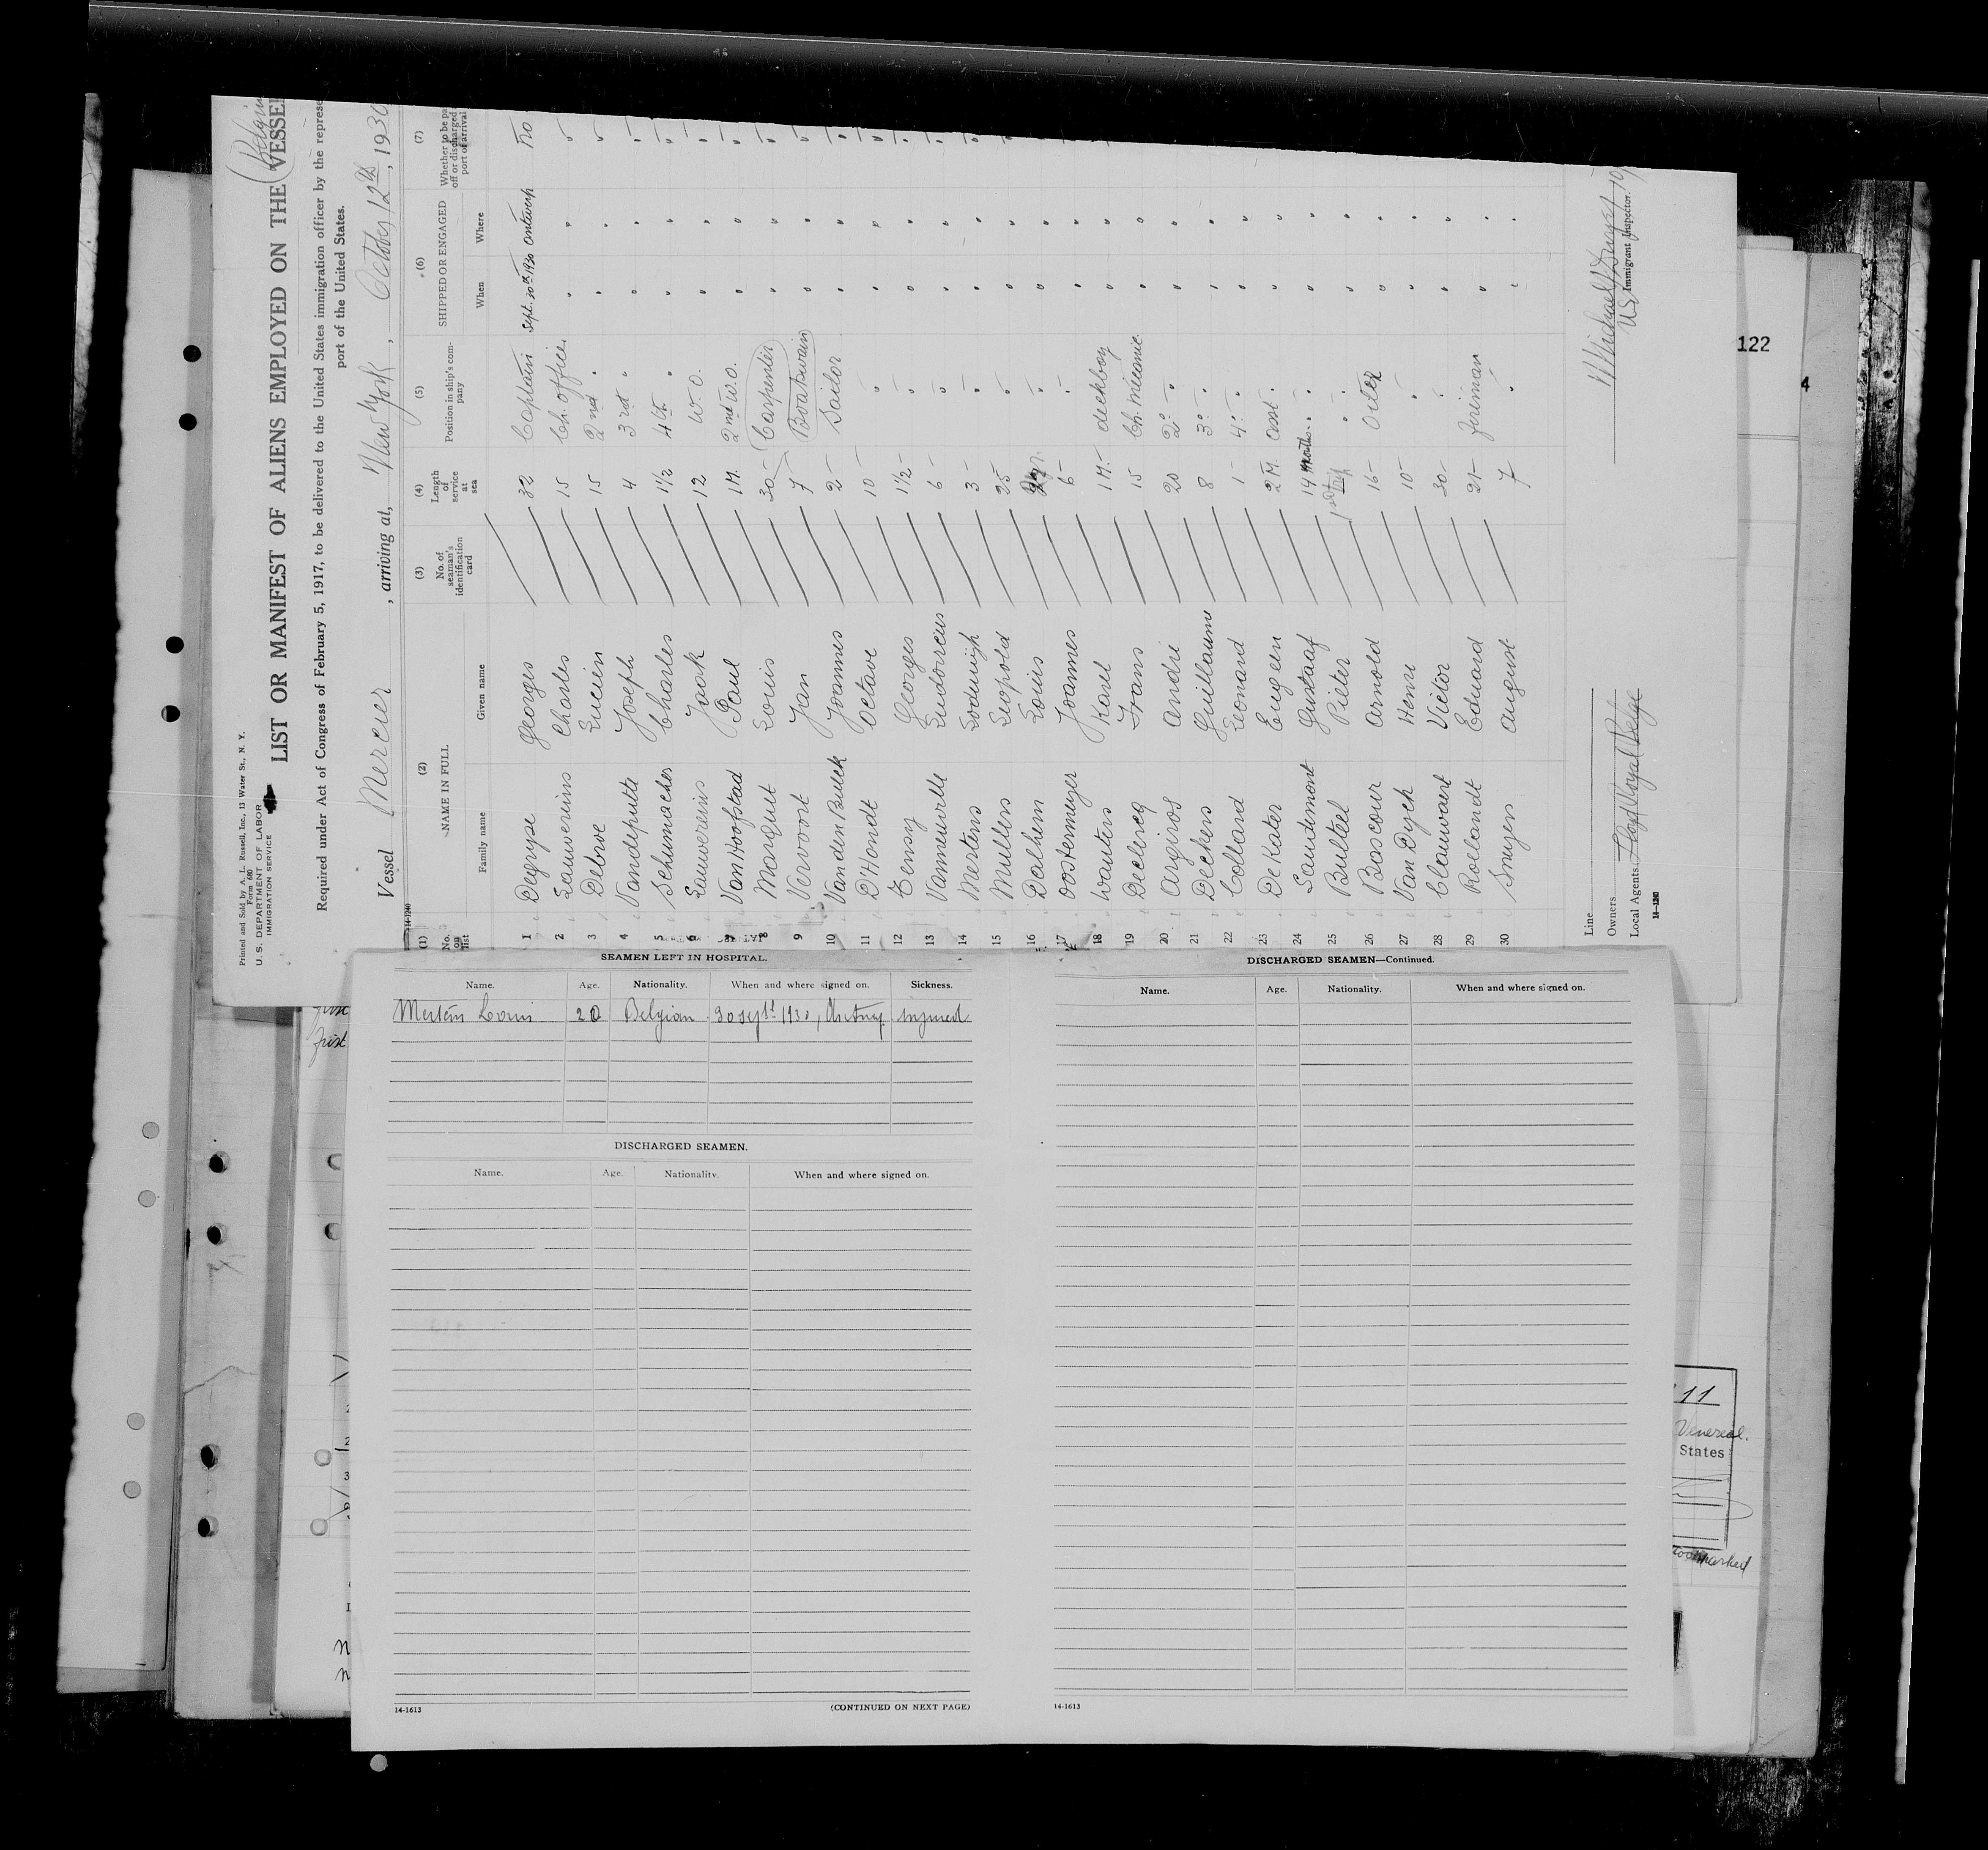 Printed and Sold by A. L. Russell, Inc., 13 Water St., N. Y.
Form 680
U. S. DEPARTMENT OF LABOR
IMMIGRATION SERVICE
LIST OR MANIFEST OF ALIENS EMPLOYED ON THE VESSEL
Required under Act of Congress of February 5, 1917, to be delivered to the United States immigration officer by the represe
port of the United States.
Vessel Mercier, arriving at, New York, October 12th, 1930
(1) (2) (3) (4) (5) (6) (7)
No. on list NAME IN FULL No. of seaman's identification card Length of service at sea Position in ship's company SHIPPED OR ENGAGED Whether to be pa off or discharged port of arrival
Family name Given name When Where
1 Degryse Georges 32 Captain Sept. 30th 1930 Antwerp no
2 Lauwereins Charles 15 Ch. officer " " "
3 Debwe Lucien 15 2nd " " " "
4 Vandeputte Joseph 4 3rd " " " "
5 Schumacher Charles 1 1/2 4th " " " "
6 Lauwereins Jack 12 W.O. " " "
7 Van Hoofstad Paul 1 M. 2nd W.O. " " "
8 Marquet Louis 30 Carpenter " " "
9 Vervoort Jan 7 Boatswain " " "
10 Van den Bulck Joannes 2 Sailor " " "
11 D'Hondt Octave 10 " " " "
12 Tensy Georges 1 1/2 " " " "
13 Vanneuville Ludovicus 6 " " " "
14 Mertens Lodewijk 3 " " " "
15 Mullens Leopold 25 " " " "
16 Dalhem Louis " " "
17 Oostermeyer Joannes 6 " " "
18 Wauters Karel 1 M. deckboy " "
19 Declercq Frans 15 Ch. mecanic " "
20 Argiros André 20 2° " " "
21 Deckers Guillaume 8 3° " " "
22 Collard Leonard 1 4° " " "
23 De Kater Eugeen 2 M. asst. " "
24 Gustaaf 14 months " " " "
25 Bulteel Pieter 1st trip " " " "
26 Boscour Arnold 16 Oiler " "
27 Van Dyck Henri 10 " " "
28 Clauwaert Victor 30 " " "
29 Roelandt Eduard 21 fireman " "
30 Snyers August 7 " " "
Line
Owners
Local Agents Lloyd Royal Belge
Immigrant Inspector.
14-1240
122
4
SEAMEN LEFT IN HOSPITAL.
Name. Age. Nationality. When and where signed on. Sickness.
Mertens Louis 20 Belgian 30 sept 1930, Antwerp injured
DISCHARGED SEAMEN.
Name. Age. Nationality. When and where signed on.
14-1613
(CONTINUED ON NEXT PAGE)
DISCHARGED SEAMEN—Continued.
Name. Age. Nationality. When and where signed on.
14-1613
first
11
Venereal.
States
marked